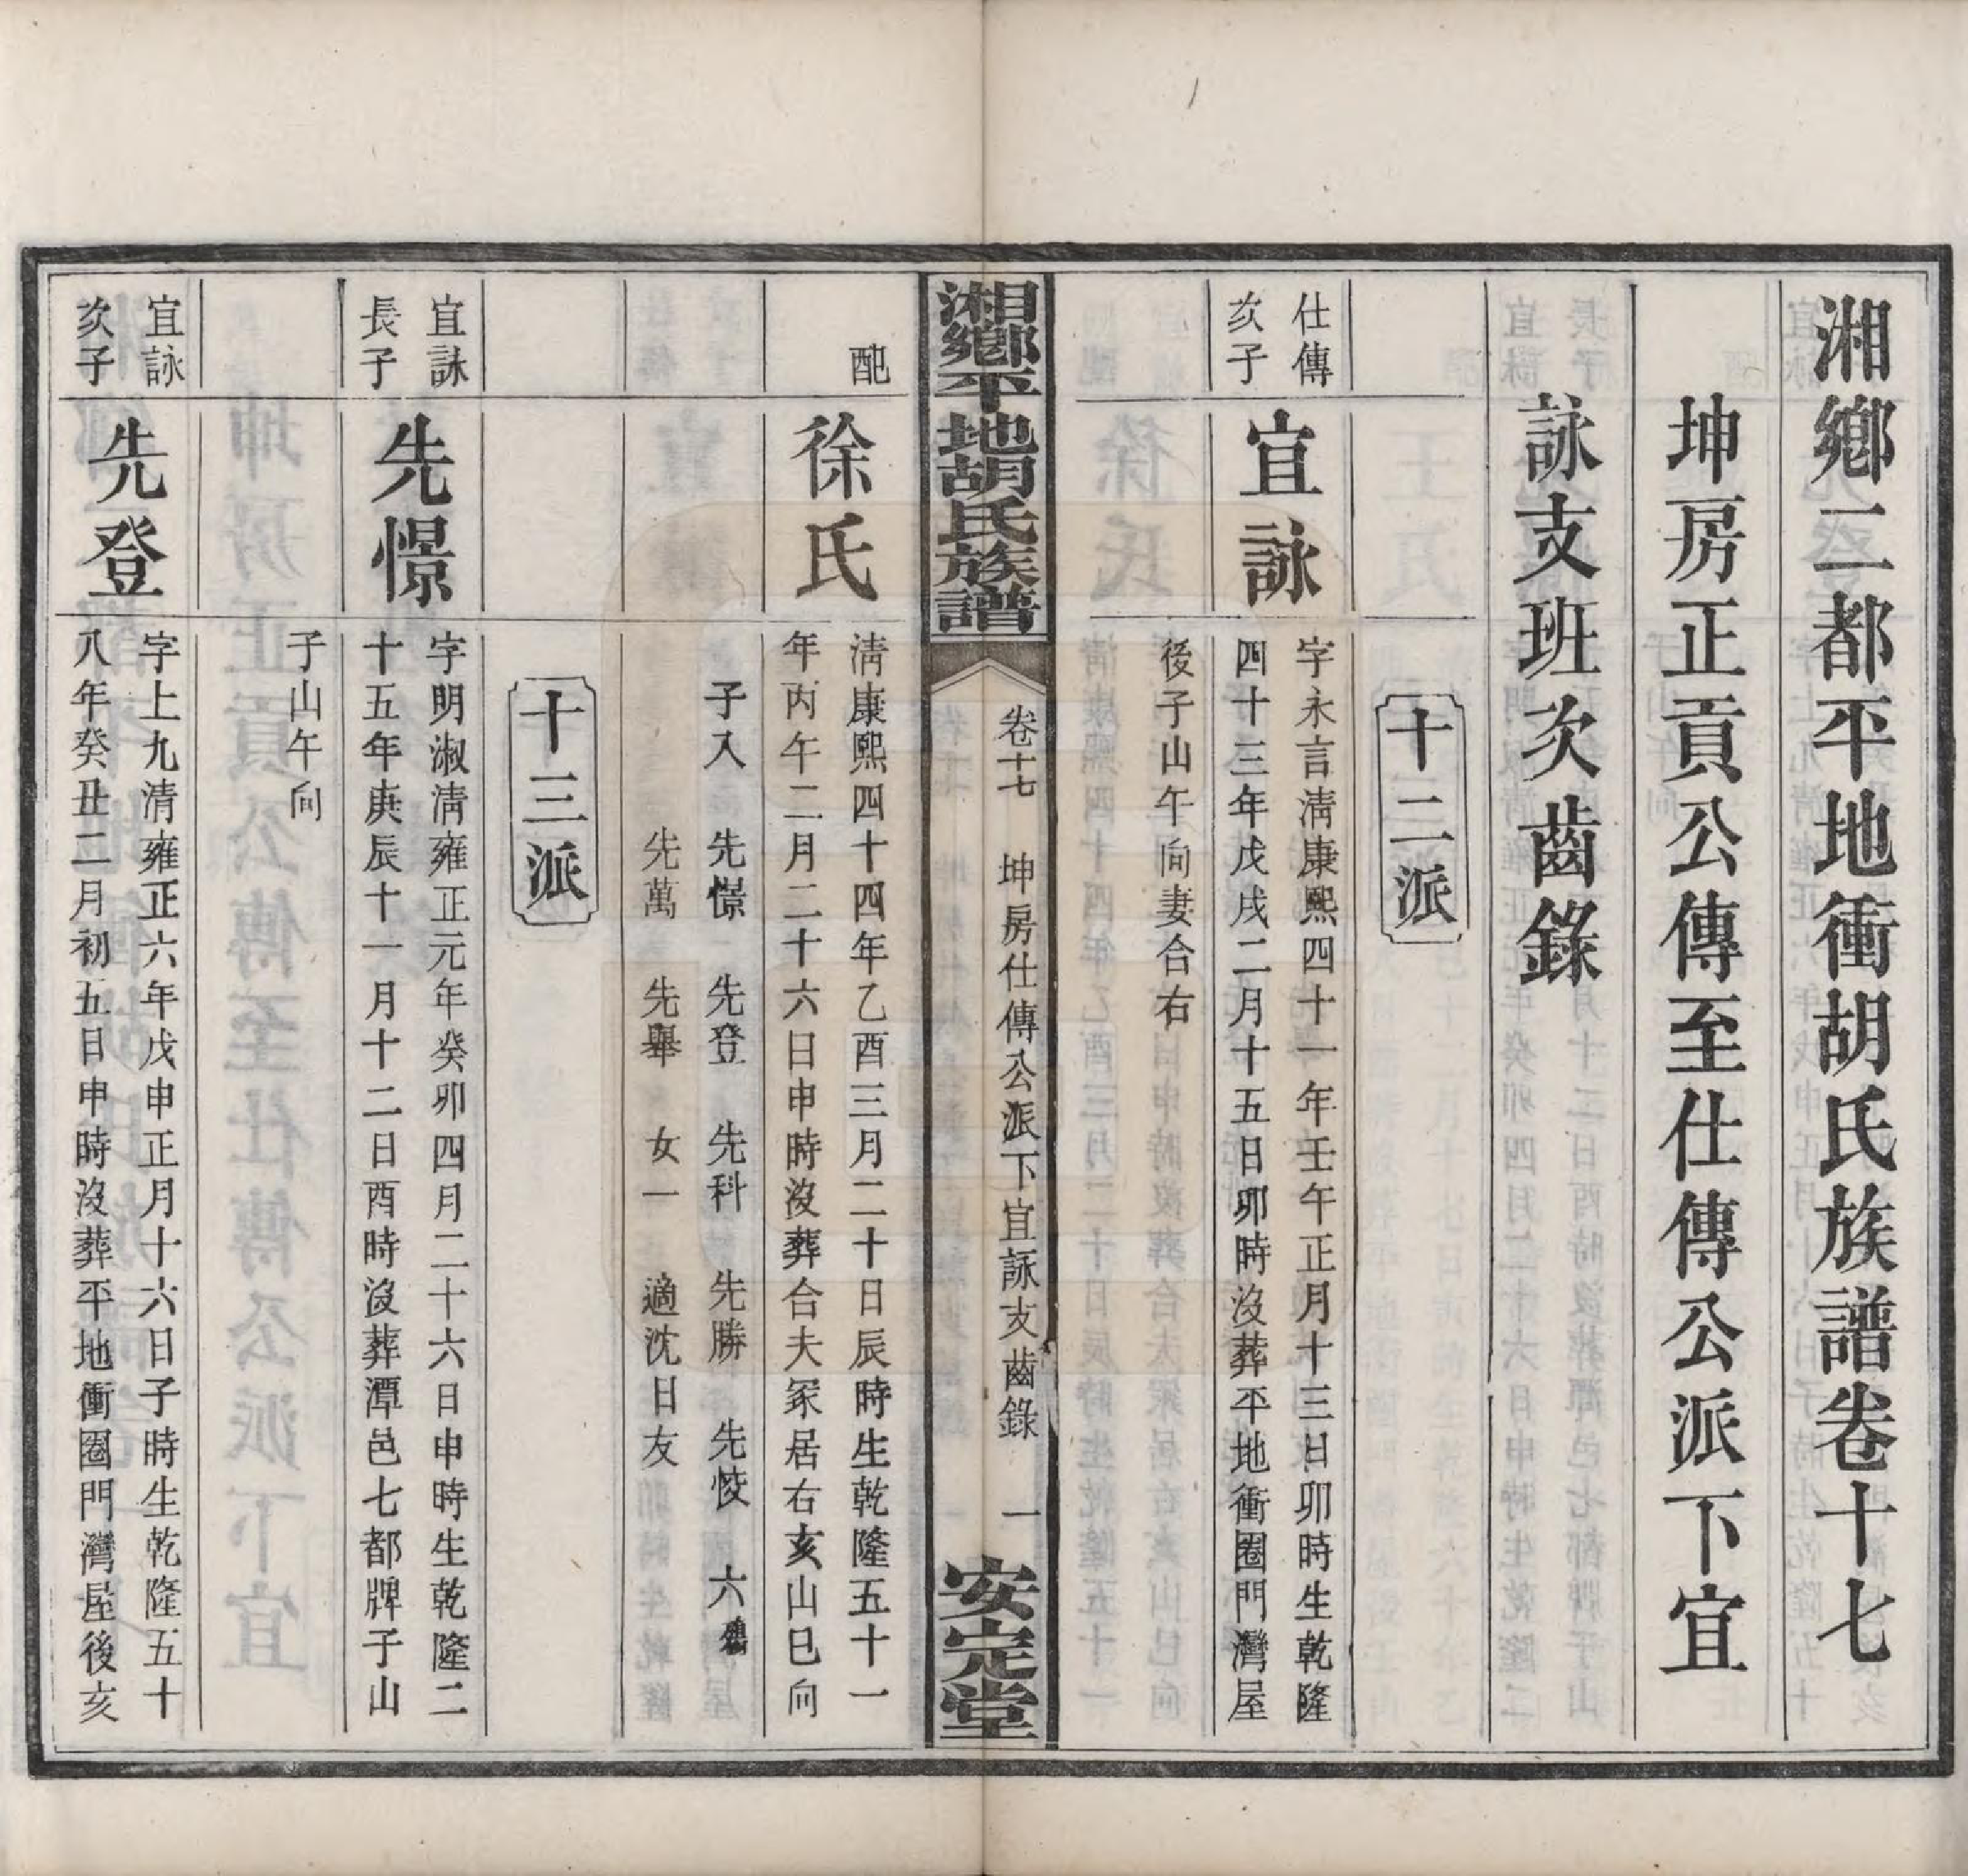 湘鄉二都平地衝胡氏族譜卷十七
坤房正貢公傳至仕傳公派下宜
詠支班次齒錄
十二派
仕傳
次子
宜詠
字永言淸康熙四十一年壬午正月十三日卯時生乾隆
四十三年戊戌二月十五日卯時沒葬平地衝圈門灣屋
後子山午向妻合右
湘鄉平地胡氏族譜
卷十七 坤房仕傳公派下宜詠支齒錄 一
安定堂
配
徐氏
淸康熙四十四年乙酉三月二十日辰時生乾隆五十一
年丙午二月二十六日申時沒葬合夫冢居右亥山巳向
子入 先憬 先登 先科 先勝 先悛 六
先萬 先舉 女一 適沈日友
十三派
宜詠
長子
先憬
字明淑淸雍正元年癸卯四月二十六日申時生乾隆二
十五年庚辰十一月十二日酉時沒葬潭邑七都牌子山
子山午向
宜詠
次子
先登
字上九清雍正六年戊申正月十六日子時生乾隆五十
八年癸丑二月初五日申時沒葬平地衝圈門灣屋後亥